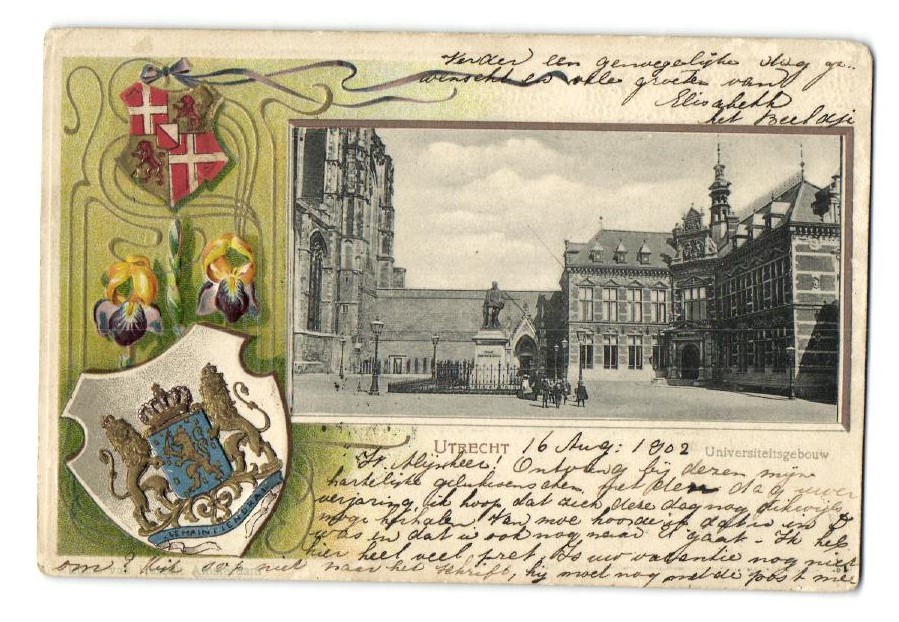 Verder een genoegelijke dag ge-
wenscht en vele groeten van
Elisabeth
het
UTRECHT 16 Aug: 1902 Universiteitsgebouw
Mijnheer! Ontvang bij dezen mijn
hartelijke gelukwenschen met den dag uwer
verjaring, ik hoop dat zich deze dag nog dikwijls
moge herhalen. Van moe hoorde ik dat u in
was en dat u ook nog naar gaat - Ik heb
hier heel veel pret. Is uw vacantie nog niet
om? Kijk niet naar het schrift, hij moet nog met de post mee
JE MAINTIENDRAI